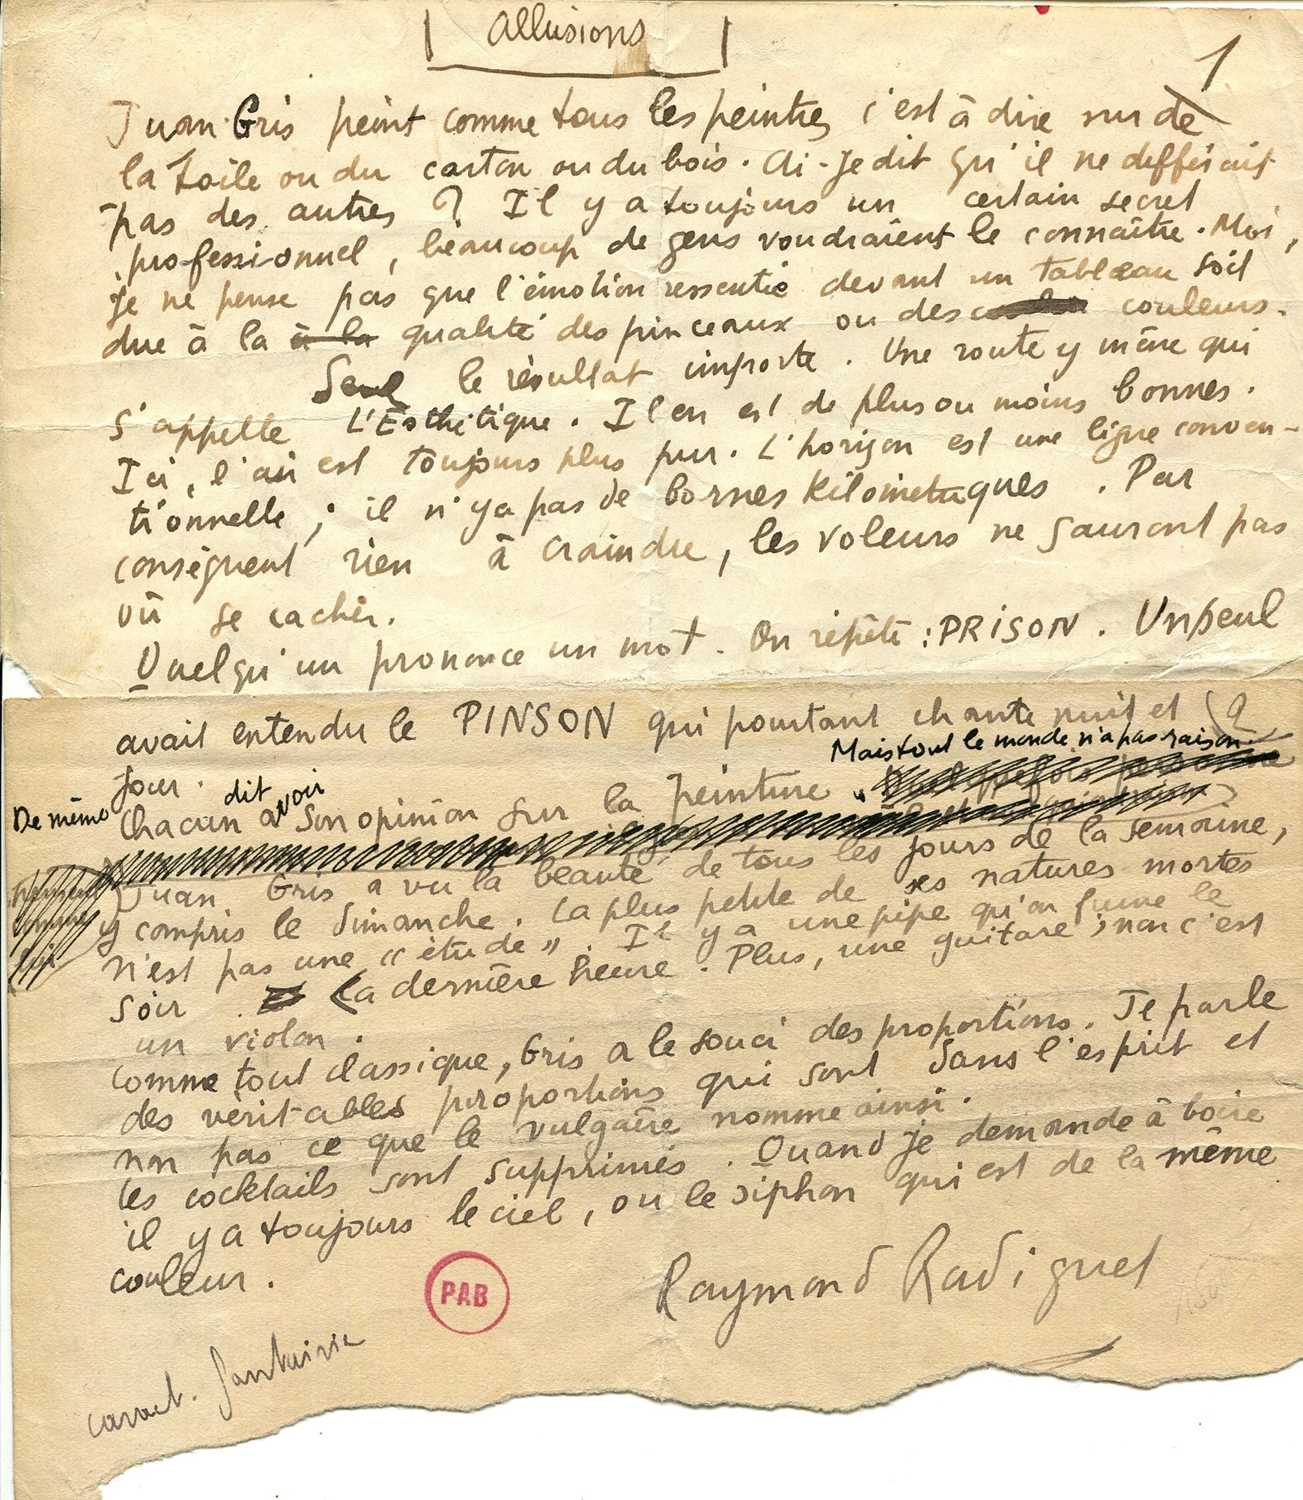 Allusions
1
Juan Gris peint comme tous les peintres c'est à dire sur de
la toile ou du carton ou du bois. Ai-je dit qu'il ne différait
pas des autres ? Il y a toujours un certain secret
professionnel, beaucoup de gens voudraient le connaître. Moi,
je ne pense pas que l'émotion ressentie devant un tableau soit
due à la à la qualité des pinceaux ou des couleurs.
Seul le résultat importe. Une route y mène qui
s'appelle L'Esthétique. Il en est de plus ou moins bonnes.
Ici, l'air est toujours plus pur. L'horizon est une ligne conven-
tionnelle ; il n'y a pas de bornes kilométriques. Par
conséquent rien à craindre, les voleurs ne sauront pas
où se cacher.
Quelqu'un prononce un mot. On répète : PRISON. Un seul
avait entendu le PINSON qui pourtant chante nuit et
jour.
Mais tout le monde n'a pas raison.
De même chacun dit avoir son opinion sur la peinture.
Juan Gris a vu la beauté de tous les jours de la semaine,
y compris le dimanche. La plus petite de ses natures mortes
n'est pas une « étude ». Il y a une pipe qu'on fume le
soir. La dernière heure. Plus, une guitare ; non c'est
un violon.
Comme tout classique, Gris a le souci des proportions. Je parle
des véritables proportions qui sont dans l'esprit et
non pas ce que le vulgaire nomme ainsi.
Les cocktails sont supprimés. Quand je demande à boire
il y a toujours le ciel, ou le siphon qui est de la même
couleur.
Raymond Radiguet
PAB